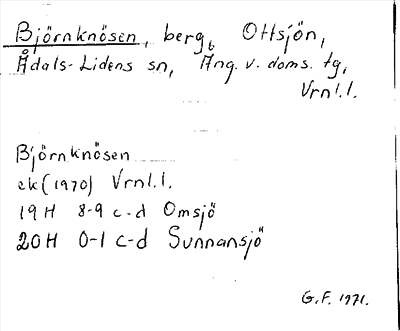 Björnknösen, berg, Ottsjön,
Ådals-Lidens sn, Ång. v. doms. tg,
Vrnl.l.
Björnknösen
ek (1970) Vrnl.l.
19H 8-9 c-d Omsjö
20H 0-1 c-d Sunnansjö
G.F. 1971.